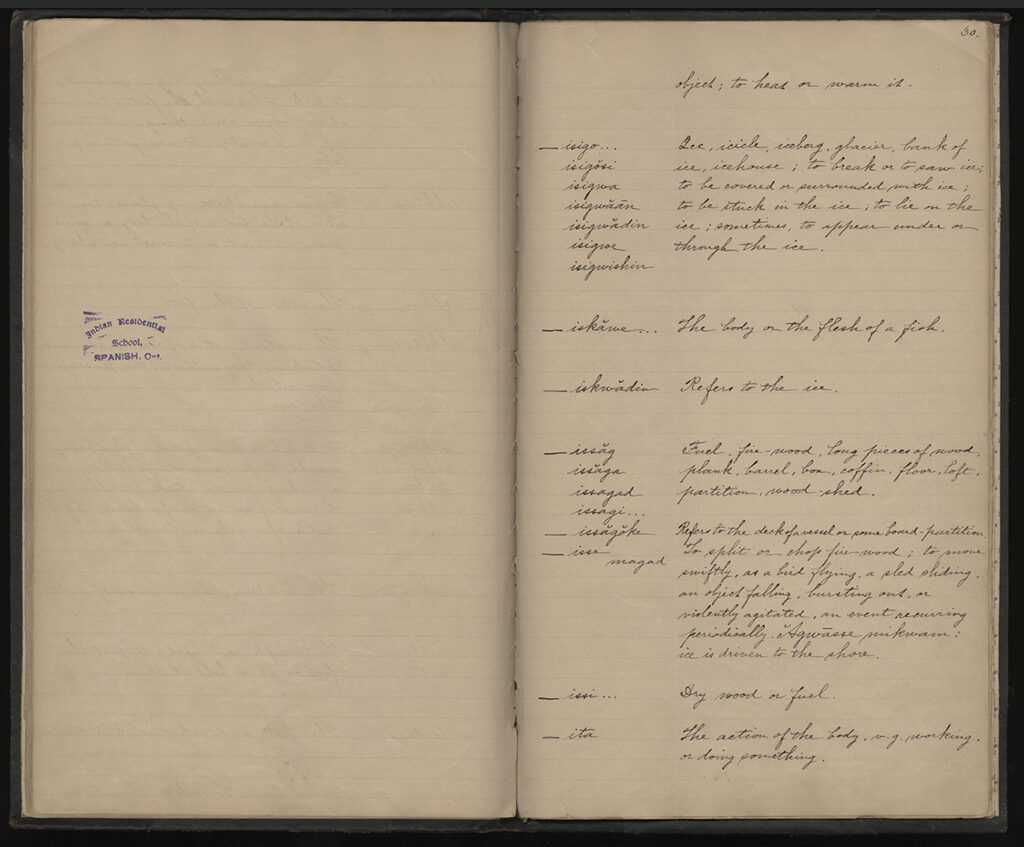 Indian Residential
School,
SPANISH, Ont.
30.
object; to heat or warm it.
— isigo... Ice, icicle, iceberg, glacier, bank of
isigŏsi ice, icehouse; to break or to saw ice;
isigwa to be covered or surrounded with ice;
isigwāăn to be stuck in the ice; to lie on the
isigwădin ice; sometimes, to appear under or
isigwe through the ice.
isigwishin
— iskăwe... The body or the flesh of a fish.
— iskwădin Refers to the ice.
— issăg Fuel, fire-wood, long pieces of wood,
issăga plank, barrel, box, coffin, floor, loft,
issagad partition, wood-shed.
issagi...
— issăgŏke Refers to the deck of a vessel or some board-partition
— isse To split or chop fire-wood; to move
magad swiftly, as a bird flying, a sled sliding,
an object falling, bursting out, or
violently agitated, an event recurring
periodically. Ăgwāsse mikwam:
ice is driven to the shore.
— issi... Dry wood or fuel.
— ita The action of the body, v.g. working,
or doing something.